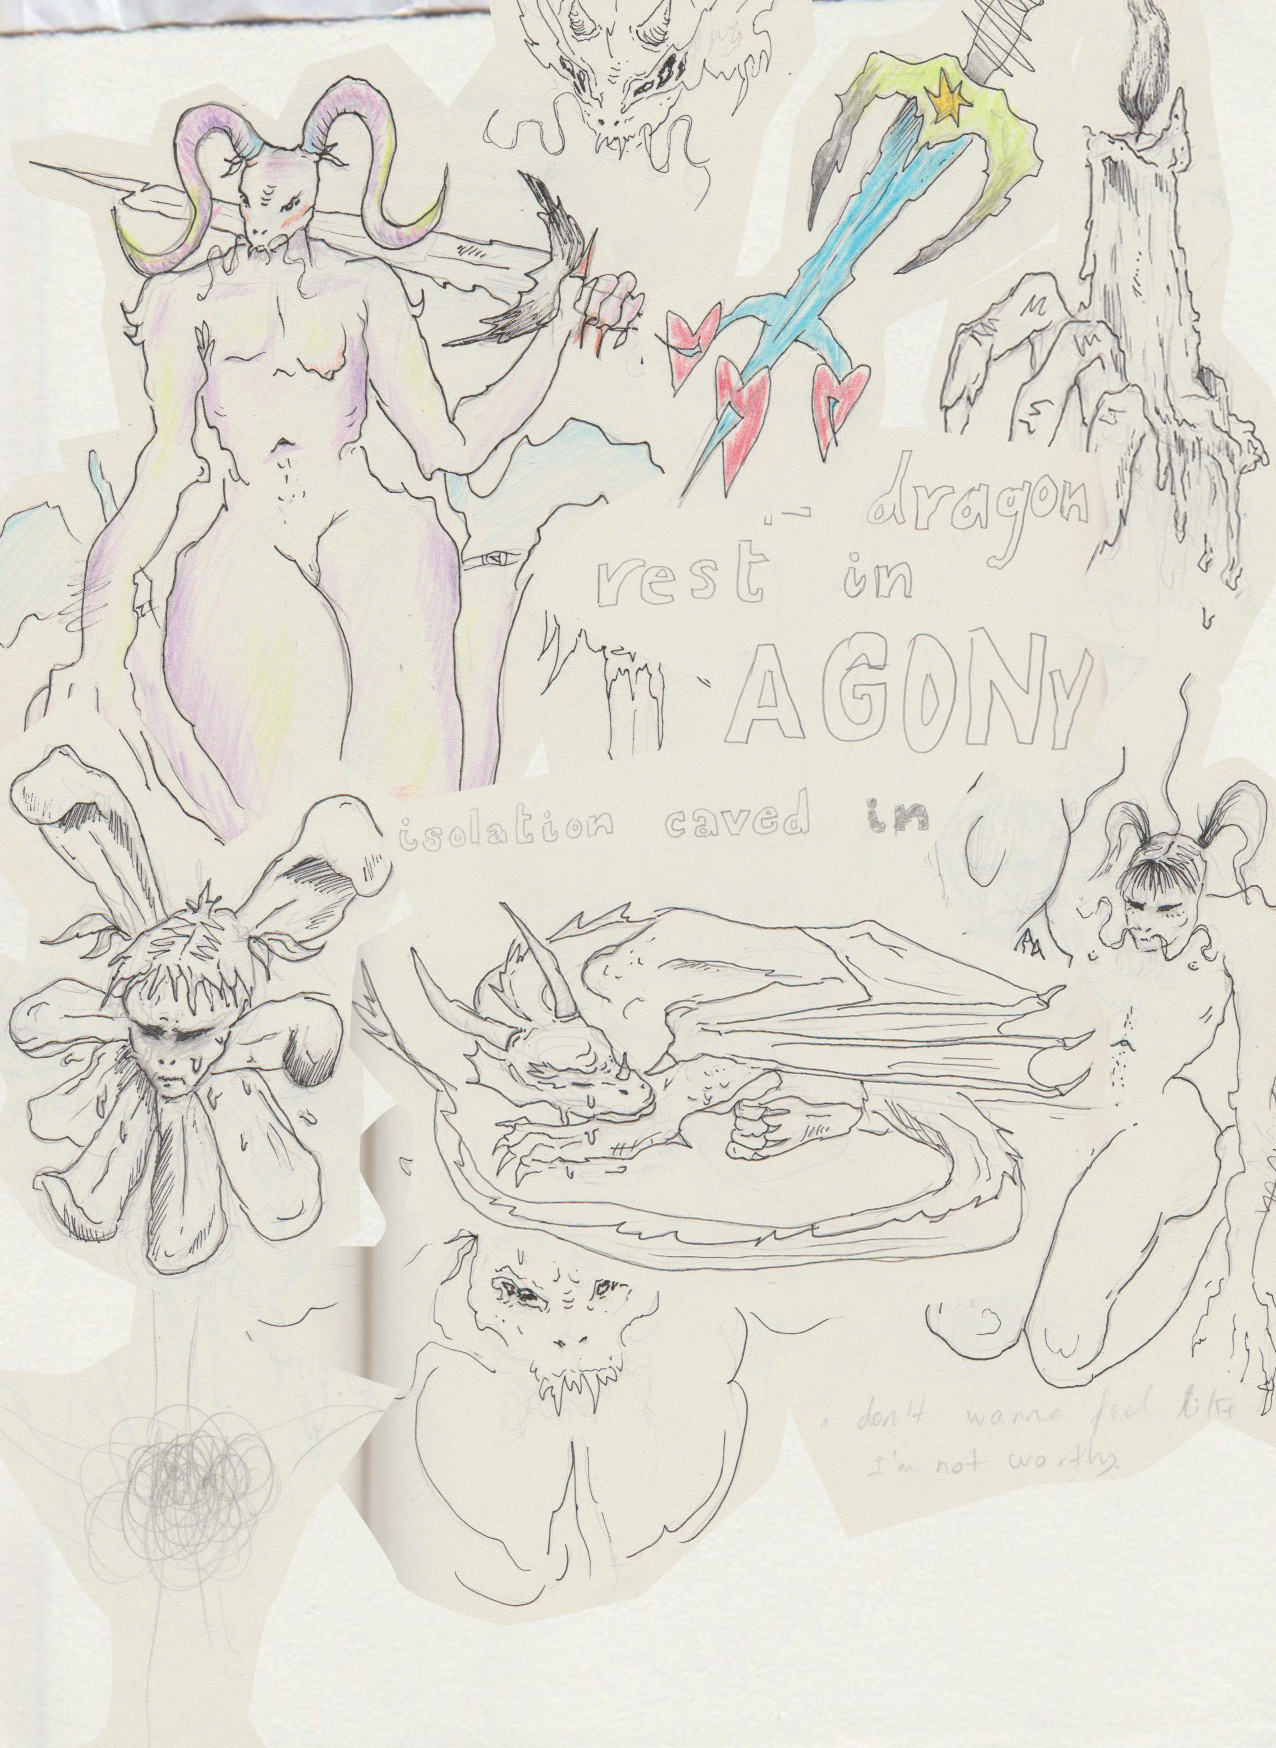 dragon
rest in
AGONY
isolation caved in
don't wanna feel like
I'm not worthy.